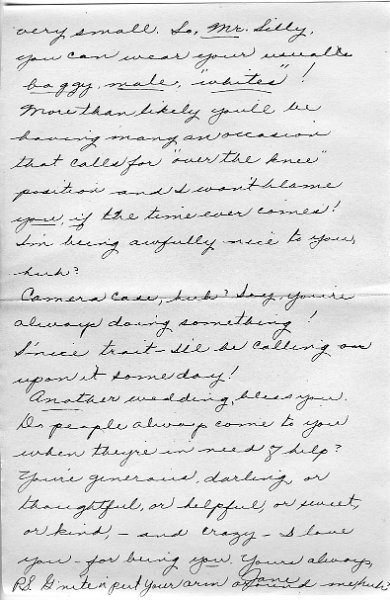 very small. So, Mr. Silly,
you can wear your usual
baggy, male, "whites"!
More than likely you'll be
having many an occasion
that calls for "over the knee"
position and I won't blame
you, if the time ever comes!
I'm being awfully nice to you,
huh?
Camera case, huh? Say, you're
always doing something!
S'nice trait - I'll be calling on
upon it some day!
Another wedding, bless you.
Do people always come to you
when they're in need of help?
You're generous, darling, or
thoughtful, or helpful, or sweet,
or kind, - and crazy - I love
you - for being you. Yours always,
Jane
P.S. G'nite n put your arm around me, huh?